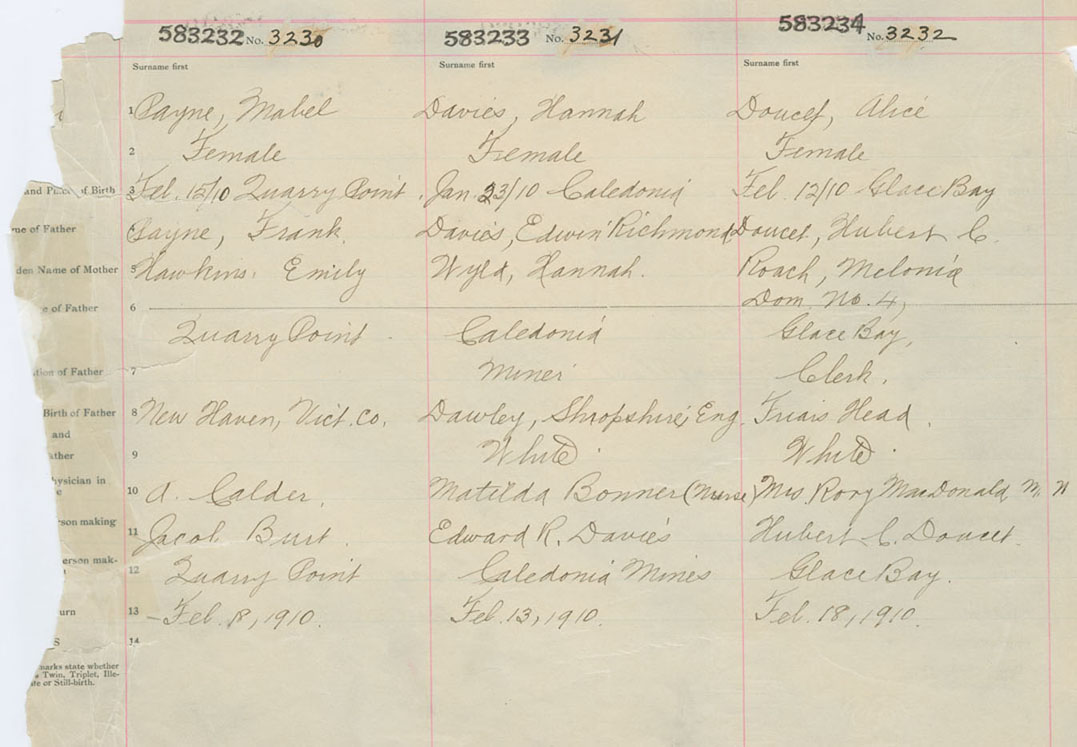 583232 No. 3230 583233 No. 3231 583234 No. 3232
Surname first Surname first Surname first
1 Payne, Mabel Davies, Hannah Doucet, Alice
2 Female Female Female
and Place of Birth 3 Feb. 15/10 Quarry Point Jan. 23/10 Caledonia Feb. 12/10 Glace Bay
me of Father Payne, Frank. Davies, Edwin Richmond Doucet, Hubert C.
den Name of Mother 5 Hawkins, Emily Wyld, Hannah. Roach, Melonia
e of Father 6 Dom No. 4,
Quarry Point Caledonia Glace Bay,
ation of Father 7 Miner Clerk.
Birth of Father 8 New Haven, Vict. Co. Dawley, Shropshire, Eng. Friars Head.
and
ather 9 White White
hysician in
e 10 A. Calder. Matilda Bonner (Nurse) Mrs Rory MacDonald M. W
rson making
11 Jacob Burt. Edward R. Davies Hubert C. Doucet.
erson mak-
12 Quarry Point Caledonia Mines Glace Bay.
urn 13 Feb. 18, 1910. Feb. 13, 1910. Feb. 18, 1910.
S 14
marks state whether
Twin, Triplet, Ille-
te or Still-birth.